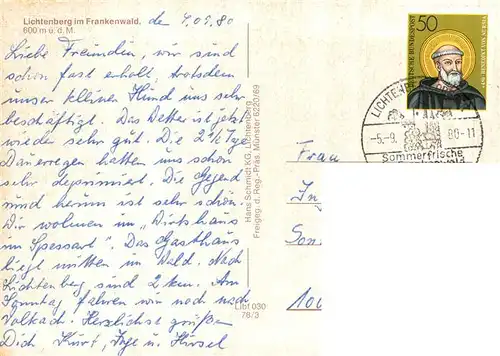 Lichtenberg im Frankenwald,
600 m ü. d. M.
Liebe Freundin, wir sind
schon fast erholt, trotzdem
unser kleiner Hund uns sehr
beschäftigt. Das Wetter ist jetzt
wieder sehr gut. Die 2½ Tage
Dauerregen hatten uns schon
sehr deprimiert. Die Gegend
rund herum ist sehr schön.
Wir wohnen im "Wirtshaus
im Spessart". Das Gasthaus
liegt mitten im Wald. Nach
Lichtenberg sind 2 km. Am
Sonntag fahren wir noch nach
Volkach. Herzlichst grüßen
Dich Kurt, Inge u.
Hans Schmidt KG, Lichtenberg
Freigeg. d. Reg.-Präs. Münster 6220/69
Libt 030
76/3
50
DEUTSCHE BUNDESPOST
LICHTEN
-5.-9.
80-11
Sommerfrische
Frau
In
Son